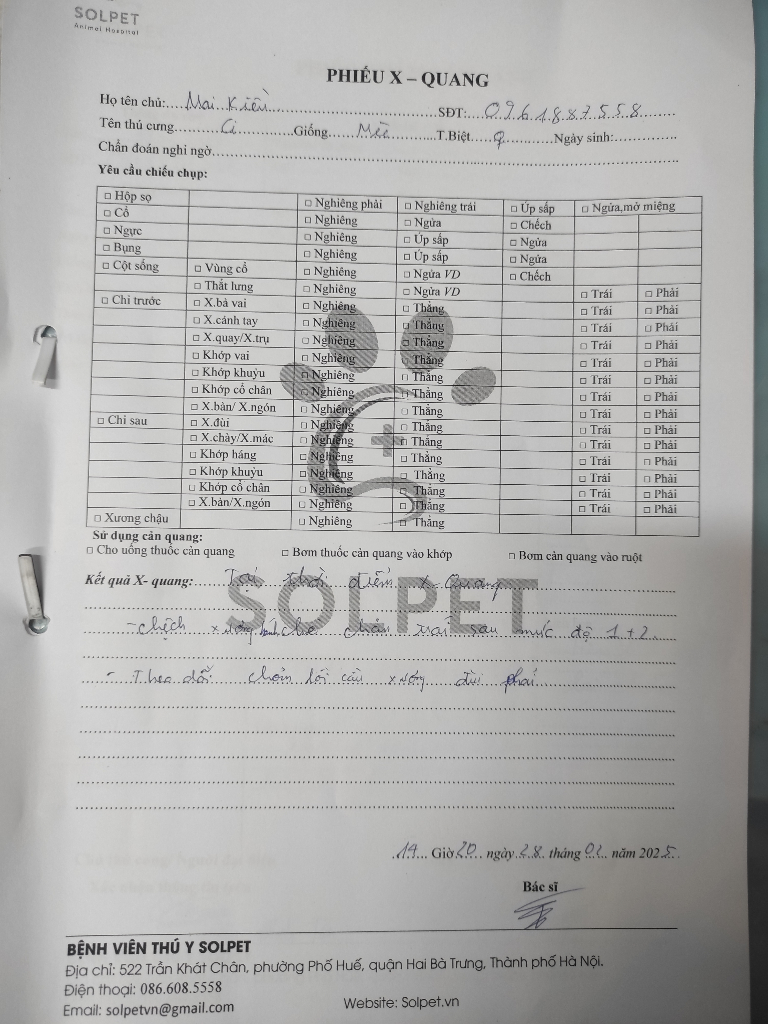 SOLPET
Animal Hospital
PHIẾU X – QUANG
Họ tên chủ:....Mai Kiều....SĐT:...0961887558...
Tên thú cưng....Ci....Giống....Mèo....T.Biệt....♀....Ngày sinh:...
Chẩn đoán nghi ngờ...
Yêu cầu chiếu chụp:
□ Hộp sọ □ Nghiêng phải □ Nghiêng trái □ Úp sấp □ Ngửa,mở miệng
□ Cổ □ Nghiêng □ Ngửa □ Chếch
□ Ngực □ Nghiêng □ Úp sấp □ Ngửa
□ Bụng □ Nghiêng □ Úp sấp □ Ngửa
□ Cột sống □ Vùng cổ □ Nghiêng □ Ngửa VD □ Chếch
□ Thắt lưng □ Nghiêng □ Ngửa VD □ Trái □ Phải
□ Chi trước □ X.bả vai □ Nghiêng □ Thẳng □ Trái □ Phải
□ X.cánh tay □ Nghiêng □ Thẳng □ Trái □ Phải
□ X.quay/X.trụ □ Nghiêng □ Thẳng □ Trái □ Phải
□ Khớp vai □ Nghiêng □ Thẳng □ Trái □ Phải
□ Khớp khuỷu □ Nghiêng □ Thẳng □ Trái □ Phải
□ Khớp cổ chân □ Nghiêng □ Thẳng □ Trái □ Phải
□ X.bàn/ X.ngón □ Nghiêng □ Thẳng □ Trái □ Phải
□ Chi sau □ X.đùi □ Nghiêng □ Thẳng □ Trái □ Phải
□ X.chày/X.mác □ Nghiêng □ Thẳng □ Trái □ Phải
□ Khớp háng □ Nghiêng □ Thẳng □ Trái □ Phải
□ Khớp khuỷu □ Nghiêng □ Thẳng □ Trái □ Phải
□ Khớp cổ chân □ Nghiêng □ Thẳng □ Trái □ Phải
□ X.bàn/X.ngón □ Nghiêng □ Thẳng □ Trái □ Phải
□ Xương chậu □ Nghiêng □ Thẳng
Sử dụng cản quang:
□ Cho uống thuốc cản quang □ Bơm thuốc cản quang vào khớp □ Bơm cản quang vào ruột
Kết quả X- quang:....Tại thời điểm X-Quang
SOLPET
- chệch xương bánh chè chân trái sau mức độ 1+2.
- Theo dõi chỏm lồi cầu xương đùi phải
.19... Giờ 20. ngày 28. tháng 02. năm 2025.
Bác sĩ
BỆNH VIÊN THÚ Y SOLPET
Địa chỉ: 522 Trần Khát Chân, phường Phố Huế, quận Hai Bà Trưng, Thành phố Hà Nội.
Điện thoại: 086.608.5558
Email: solpetvn@gmail.com Website: Solpet.vn